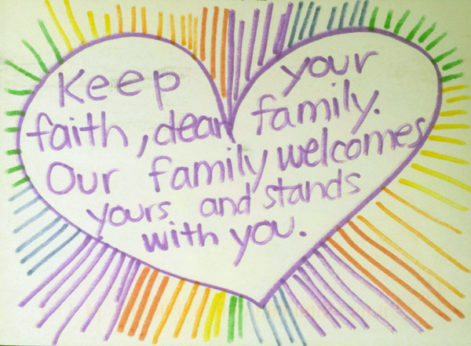 Keep your
faith, dear family.
Our family welcomes
yours and stands
with you.